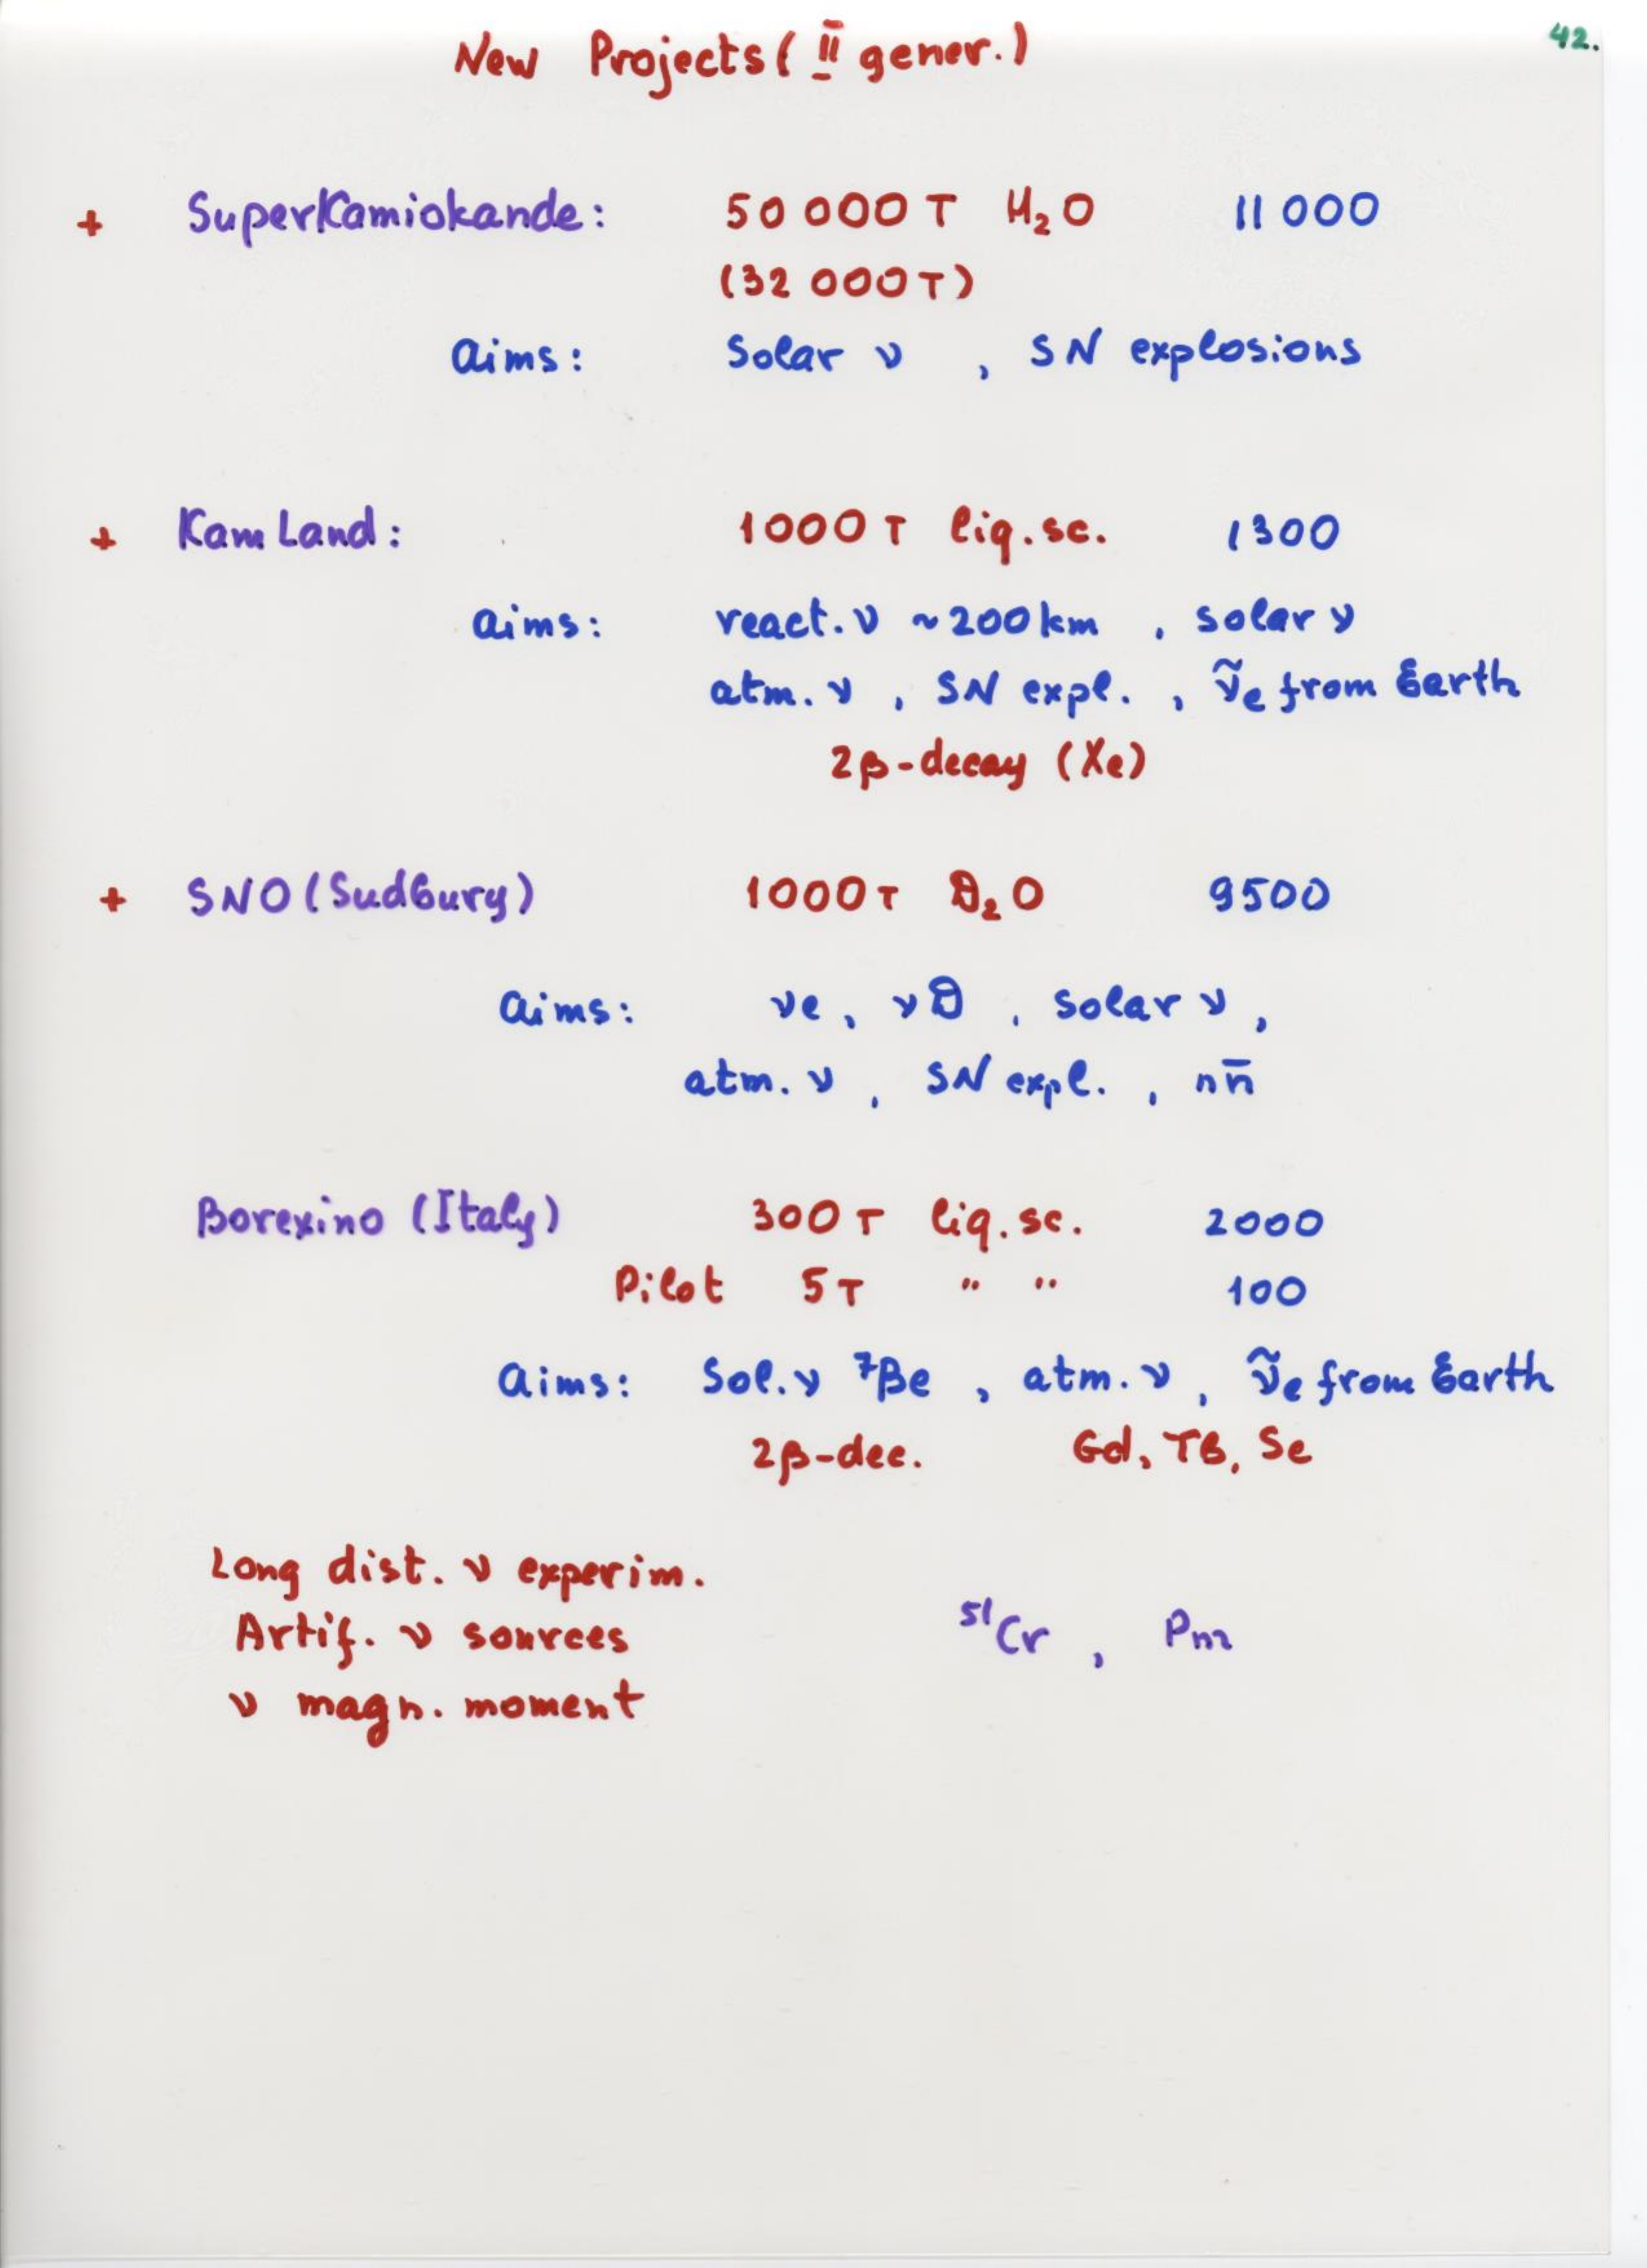 42.
New Projects ( II gener.)
+ SuperKamiokande: 50 000 T H₂O 11 000
(32 000 T)
aims: Solar ν , SN explosions
+ KamLand: 1000 T liq.sc. 1300
aims: react. ν ~200 km , solar ν
atm. ν , SN expl. , ν̃e from Earth
2β-decay (Xe)
+ SNO (Sudbury) 1000 T D₂O 9500
aims: νe, νD , solar ν ,
atm. ν , SN expl. , nn̄
Borexino (Italy) 300 T liq. sc. 2000
Pilot 5 T " " 100
aims: Sol. ν ⁷Be , atm. ν , ν̃e from Earth
2β-dec. Gd, Tb, Se
Long dist. ν experim.
Artif. ν sources ⁵¹Cr , Pm
ν magn. moment